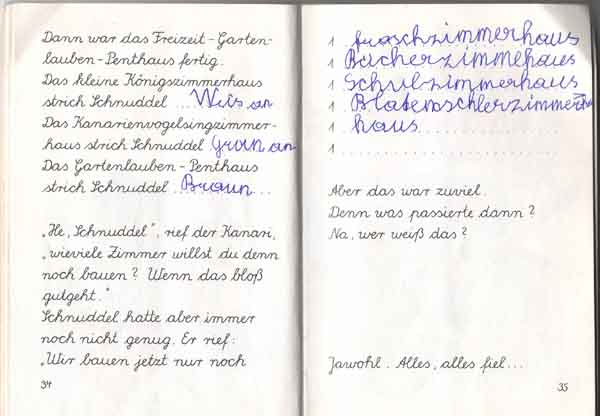 Dann war das Freizeit-Garten-
lauben-Penthaus fertig.
Das kleine Königszimmerhaus
strich Schnuddel ....Weis an
Das Kanarienvogelsingzimmer-
haus strich Schnuddel Grün an
Das Gartenlauben-Penthaus
strich Schnuddel ..Braun....
„He, Schnuddel", rief der Kanari,
„wieviele Zimmer willst du denn
noch bauen? Wenn das bloß
gutgeht."
Schnuddel hatte aber immer
noch nicht genug. Er rief:
„Wir bauen jetzt nur noch
34
1 froschzimmerhaus
1 Bücherzimmehaus
1 Schulzimmerhaus
1
1 haus
1
Aber das war zuviel.
Denn was passierte dann?
Na, wer weiß das?
Jawohl. Alles, alles fiel...
35